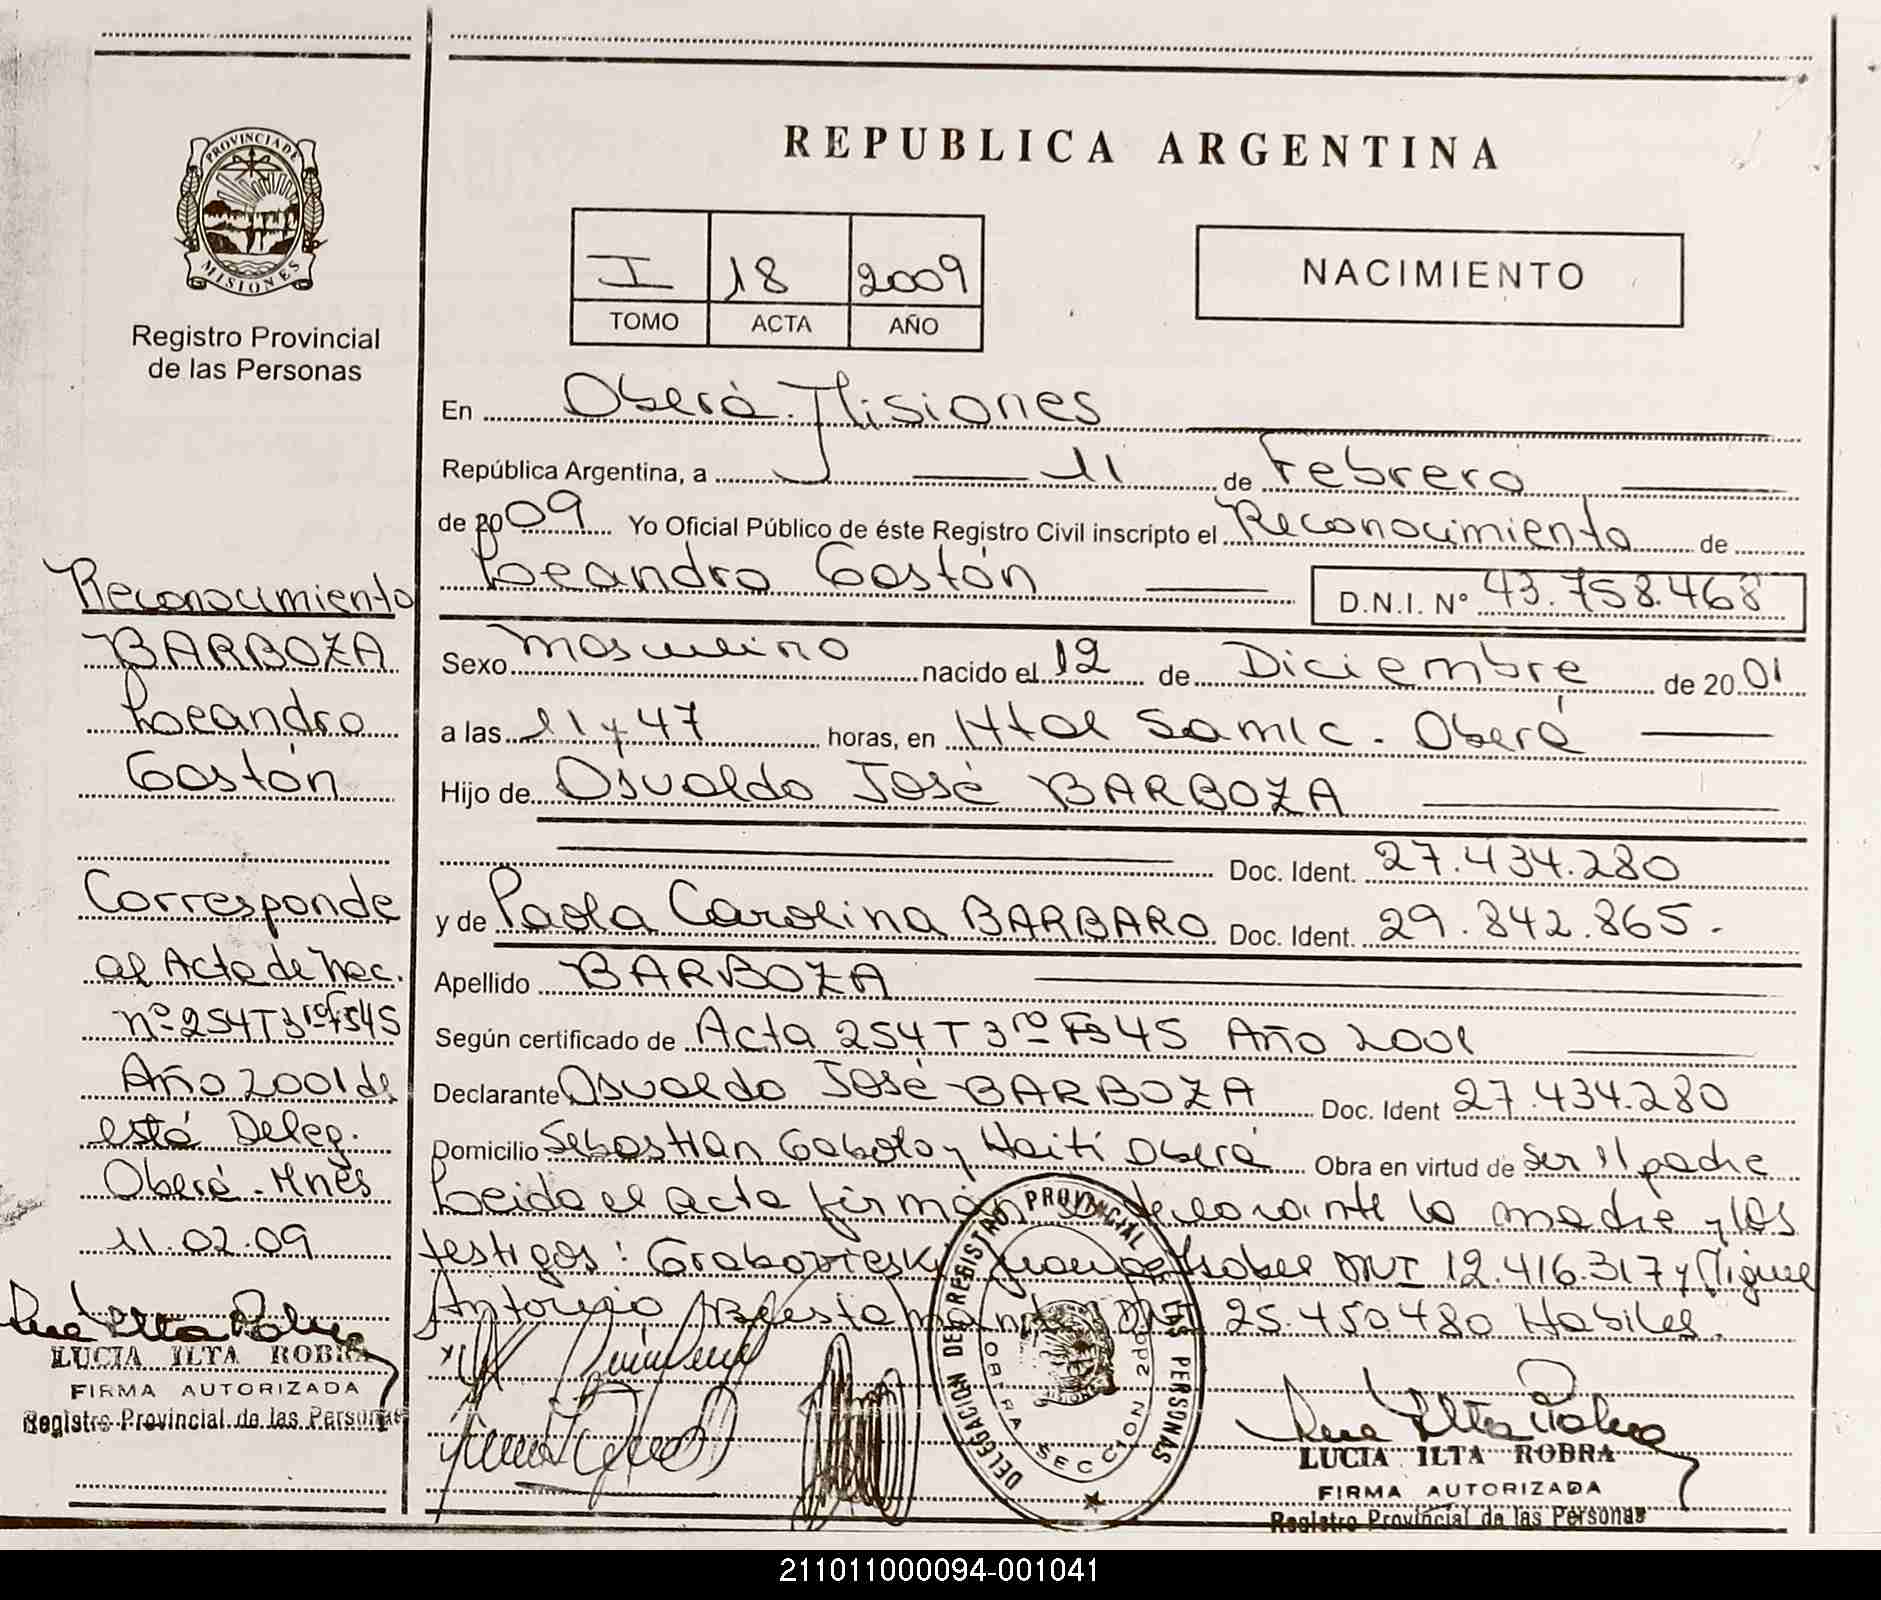 REPUBLICA ARGENTINA
PROVINCIA DE
MISIONES
Registro Provincial
de las Personas
I 18 2009
TOMO ACTA AÑO
NACIMIENTO
En Oberá. Misiones
República Argentina, a 11 de Febrero
de 2009 Yo Oficial Público de éste Registro Civil inscripto el Reconocimiento de
Leandro Gastón D.N.I. Nº 43.758.468
Sexo Masculino nacido el 12 de Diciembre de 2001
a las 11 y 47 horas, en Htal Samic. Oberá
Hijo de Osvaldo José BARBOZA
Doc. Ident. 27.434.280
y de Paola Carolina BARBARO Doc. Ident. 29.842.865.
Apellido BARBOZA
Según certificado de Acta 254 T 3ro Fs 45 Año 2001
Declarante Osvaldo José BARBOZA Doc. Ident 27.434.280
Domicilio Sebastian Gaboto y Haití Oberá Obra en virtud de ser el padre
Leida el acta firman declarante la madre y los
testigos: DNI 12.416.317 y Miguel
Antonio 25.450.480 Habiles.
Reconocimiento
BARBOZA
Leandro
Gastón
Corresponde
al Acta de Nac.
nº 254 T 3ro Fs 45
Año 2001 de
está Deleg.
Oberá - Mnes
11.02.09
LUCIA ILTA ROBRA
FIRMA AUTORIZADA
Registro Provincial de las Personas
DELEGACION DEL REGISTRO PROVINCIAL DE LAS PERSONAS
SECCION 2da
LUCIA ILTA ROBRA
FIRMA AUTORIZADA
Registro Provincial de las Personas
211011000094-001041